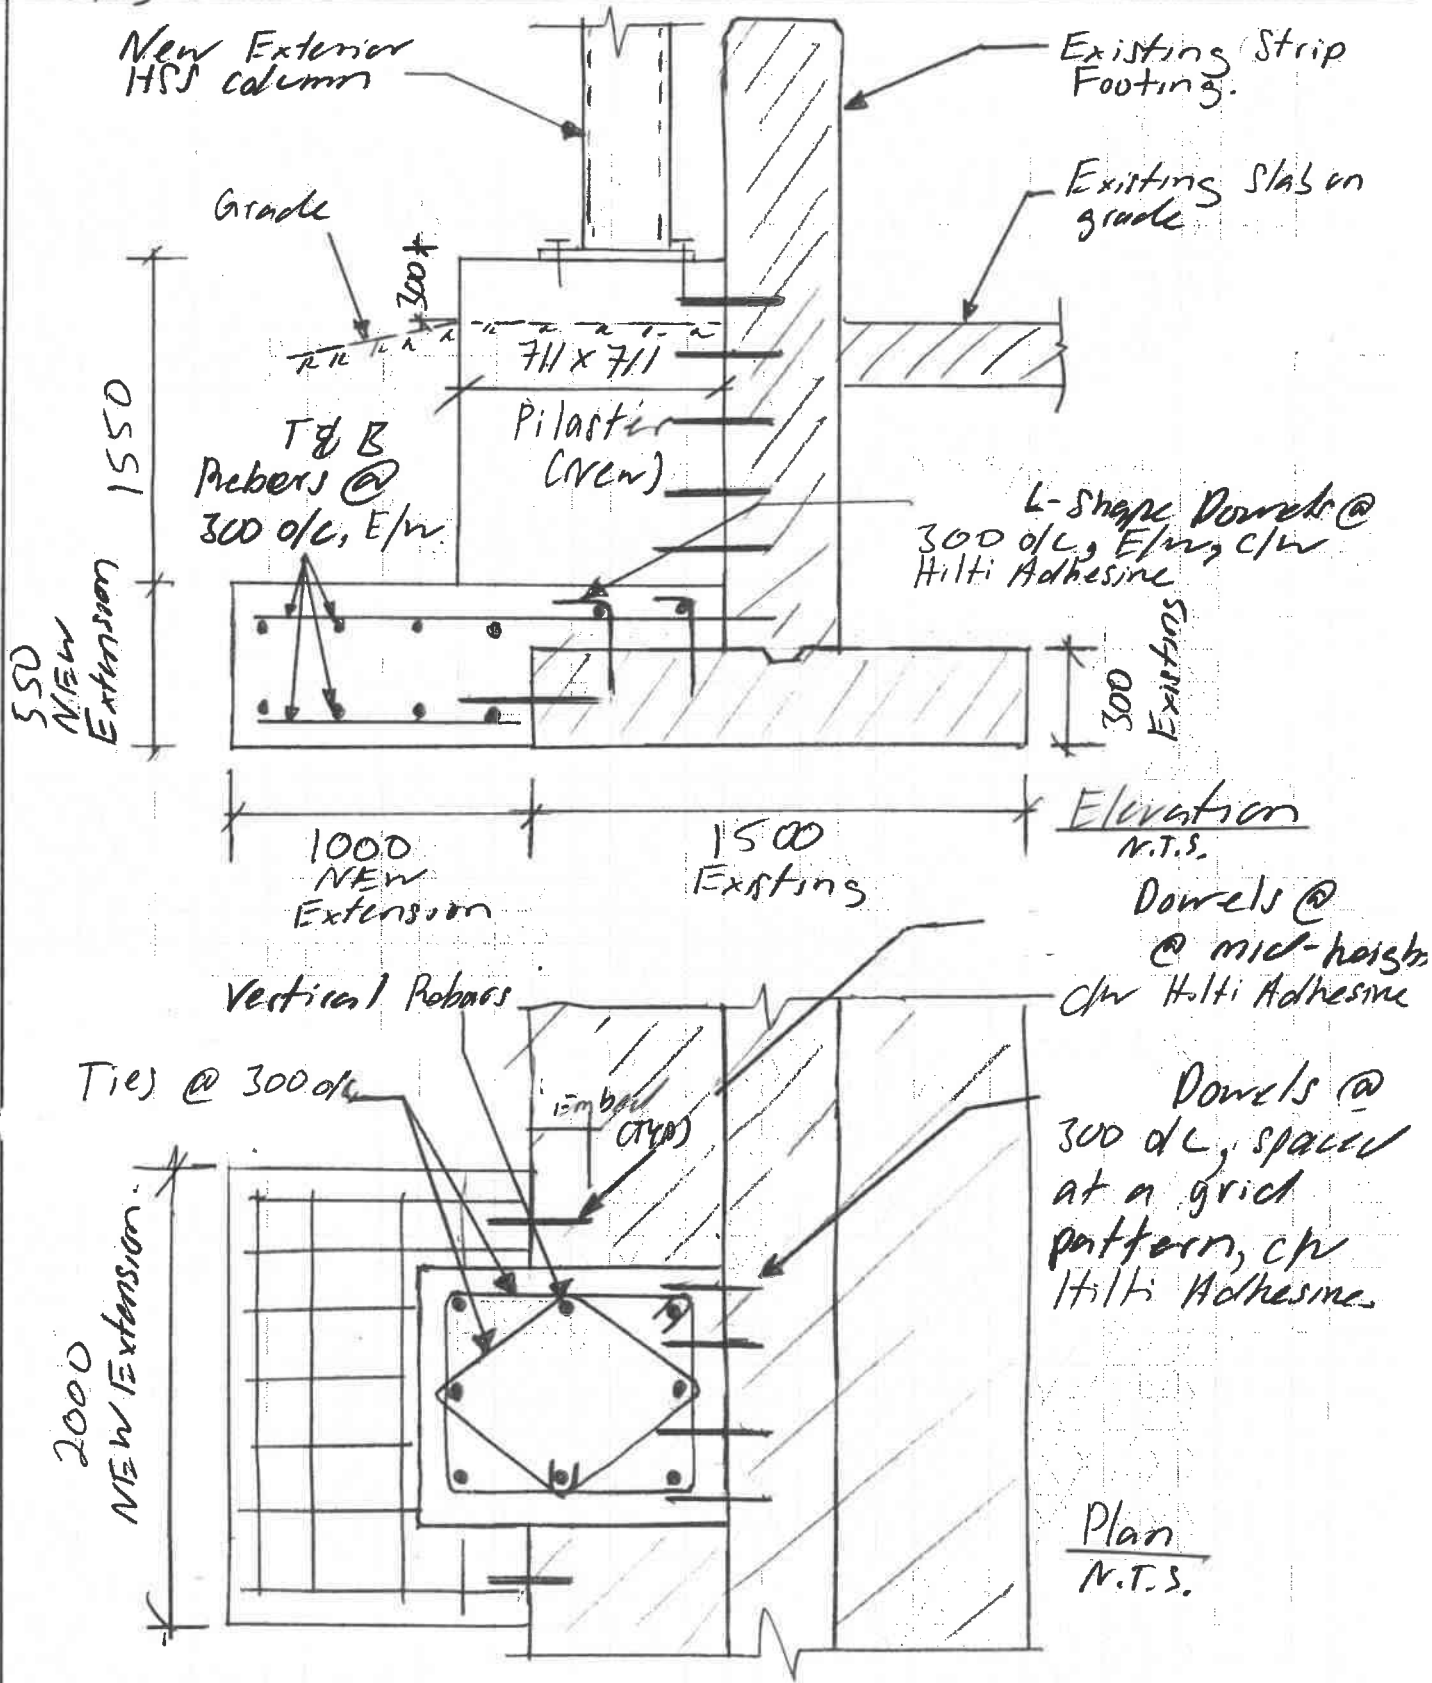 New Exterior
HSS column
Existing Strip
Footing.
Existing Slab on
grade
Grade
300±
711 x 711
Pilaster
(New)
1550
T & B
Rebars @
300 o/c, E/W
L-Shape Dowels @
300 o/c, E/W, c/w
Hilti Adhesive
550
NEW
Extension
300
Existing
1000
NEW
Extension
1500
Existing
Elevation
N.T.S.
Dowels @
@ mid-height
c/w Hilti Adhesive
Vertical Rebars
Ties @ 300 o/c
Embed
(TYP)
Dowels @
300 o/c, spaced
at a grid
pattern, c/w
Hilti Adhesive.
2000
NEW Extension.
Plan
N.T.S.